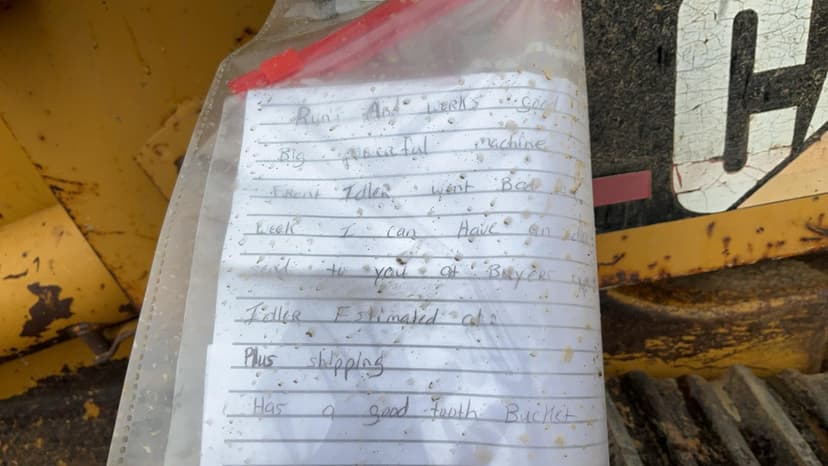 Runs And works good
Big powerful machine
Front Idler went Bad
week I can Have an
sent to you at Buyers
Idler Estimated at:
Plus shipping
Has a good tooth Bucket
CA